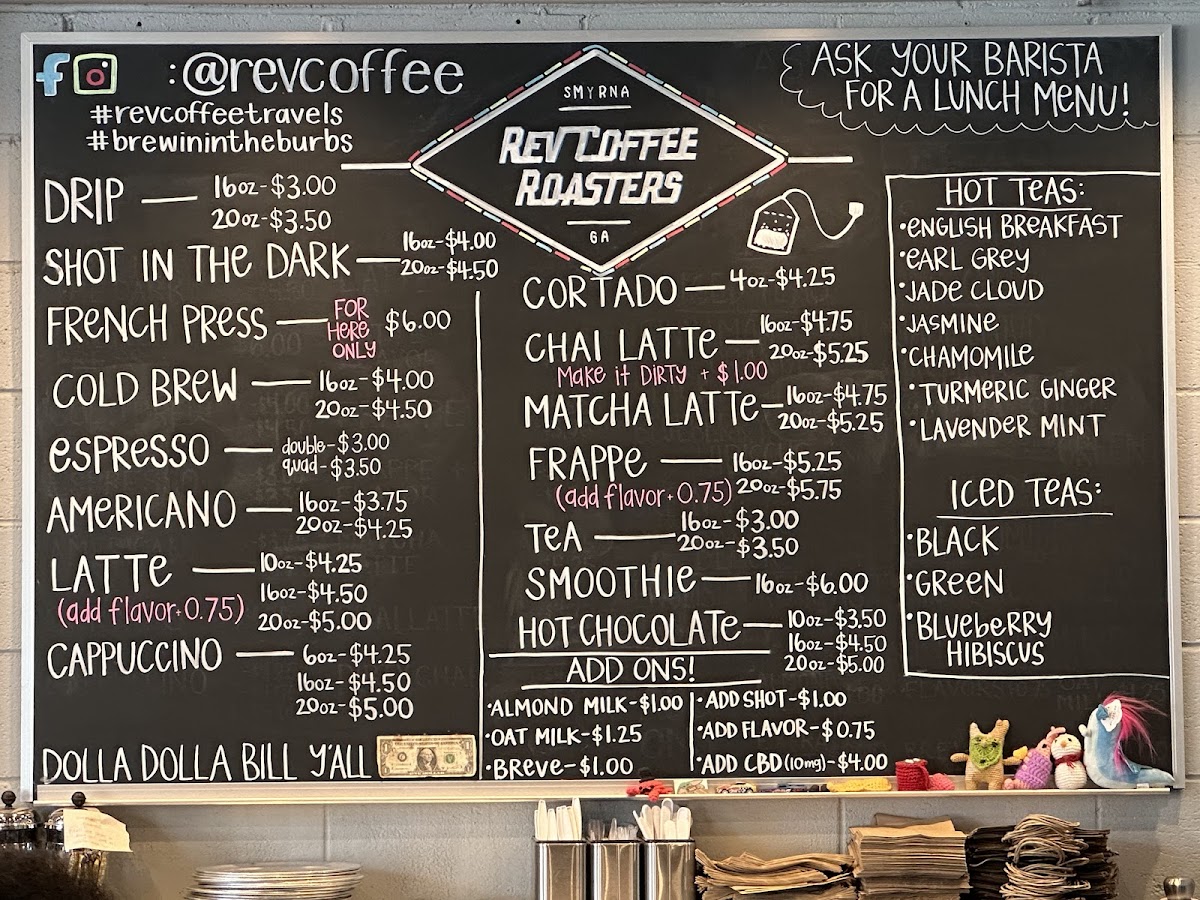 f : @revcoffee
#revcoffeetravels
#brewinintheburbs
SMYRNA
REV COFFEE
ROASTERS
GA
ASK YOUR BARISTA
FOR A LUNCH MENU!
DRIP — 16oz-$3.00
20oz-$3.50
SHOT IN THE DARK — 16oz-$4.00
20oz-$4.50
FRENCH PRESS — FOR HERE ONLY $6.00
COLD BREW — 16oz-$4.00
20oz-$4.50
ESPRESSO — double-$3.00
quad-$3.50
AMERICANO — 16oz-$3.75
20oz-$4.25
LATTE — 10oz-$4.25
16oz-$4.50
(add flavor+0.75) 20oz-$5.00
CAPPUCCINO — 6oz-$4.25
16oz-$4.50
20oz-$5.00
DOLLA DOLLA BILL Y'ALL
CORTADO — 4oz-$4.25
CHAI LATTE — 16oz-$4.75
20oz-$5.25
MAKE IT DIRTY + $1.00
MATCHA LATTE — 16oz-$4.75
20oz-$5.25
FRAPPE — 16oz-$5.25
(add flavor+0.75) 20oz-$5.75
TEA — 16oz-$3.00
20oz-$3.50
SMOOTHIE — 16oz-$6.00
HOT CHOCOLATE — 10oz-$3.50
16oz-$4.50
20oz-$5.00
ADD ONS!
•ALMOND MILK-$1.00
•OAT MILK-$1.25
•BREVE-$1.00
•ADD SHOT-$1.00
•ADD FLAVOR-$0.75
•ADD CBD (10mg)-$4.00
HOT TEAS:
•ENGLISH BREAKFAST
•EARL GREY
•JADE CLOUD
•JASMINE
•CHAMOMILE
•TURMERIC GINGER
•LAVENDER MINT
ICED TEAS:
•BLACK
•GREEN
•BLUEBERRY
HIBISCUS